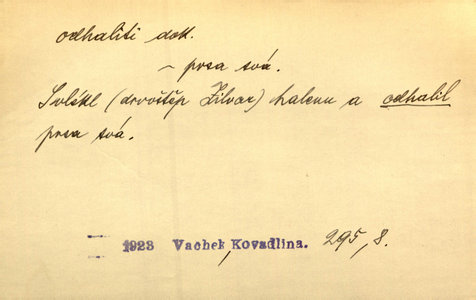 odhaliti dok.
~ prsa svá.
Svlékl (drvoštěp Žilvar) halenu a odhalil
prsa svá.
1923 Vachek, Kovadlina. 295, 8.